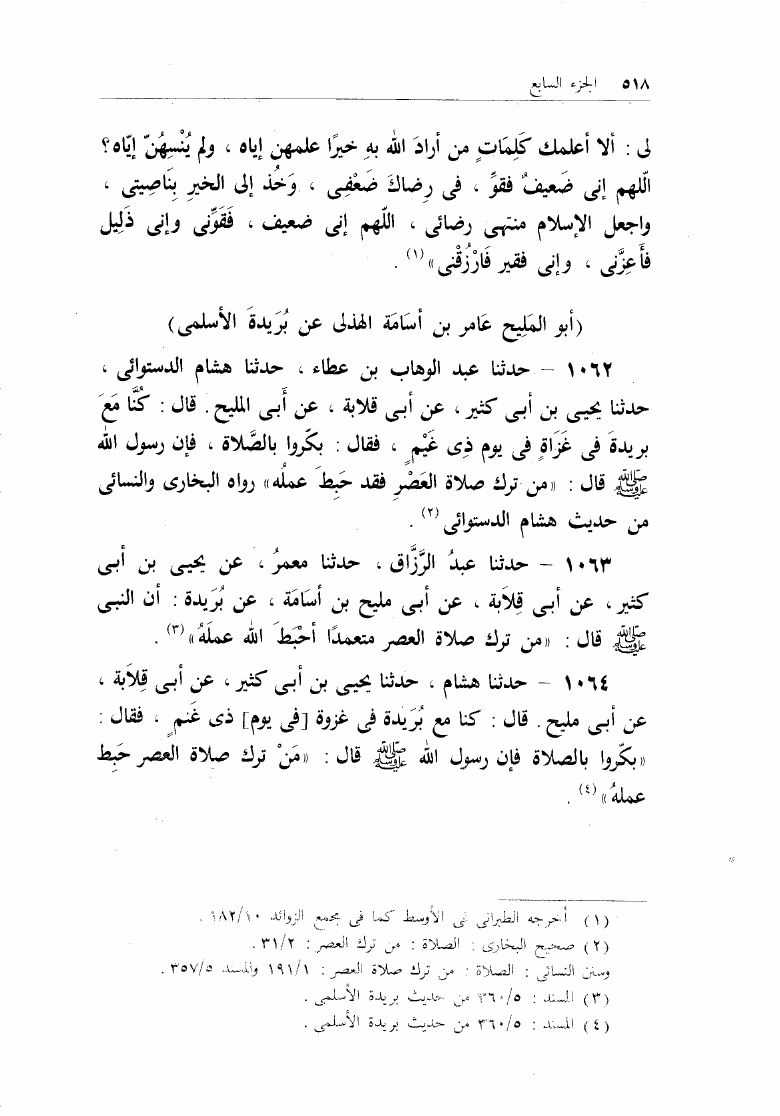 ٥١٨ الجزء السابع
لى : ألا أعلمك كَلِمَاتٍ من أرادَ الله بهِ خيرًا علمهن إياه ، ولم يُنْسِهُنّ إيّاه؟
الّلهم إنى ضَعيفٌ فقوِّ ، فى رضاكَ ضَعْفِى ، وَخُذ إلى الخيرِ بِنَاصِيتى ،
واجعل الإسلام منتهى رضائى ، اللّهم إنى ضعيف ، فَقَوِّنى وإنى ذَلِيل
فأَعِزَّنى ، وإنى فقير فَارْزُقْنى» (١) .
(أبو المَلِيح عَامر بن أسَامَة الهذلى عن بُرَيدةَ الأسلمى)
١٠٦٢ – حدثنا عبد الوهاب بن عطاء ، حدثنا هشام الدستوائى ،
حدثنا يحيى بن أبى كثير ، عن أبى قلابة ، عن أَبى المليح . قال : كُنَّا مَعَ
بريدةَ فى غَزَاةٍ فى يوم ذِى غَيْمٍ ، فقال : بكّروا بالصَّلاة ، فإن رسول الله
ﷺ قال : «من ترك صلاة العَصْرِ فقد حَبِطَ عملُه» رواه البخارى والنسائى
من حديث هشام الدستوائى (٢) .
١٠٦٣ – حدثنا عبدُ الرَّزَّاق ، حدثنا معمرُ ، عن يحيى بن أبى
كثير ، عن أبى قِلَابة ، عن أبى مليح بن أسَامَة ، عن بُرَيدة : أن النبى
ﷺ قال : «من ترك صلاة العصر متعمدًا أحْبَطَ الله عملَهُ» (٣) .
١٠٦٤ – حدثنا هشام ، حدثنا يحيى بن أبى كثير ، عن أبى قِلَابة ،
عن أبى مليح . قال : كنا مع بُرَيدة فى غزوة [فى يوم] ذى غَنمٍ ، فقال :
«بكّروا بالصلاة فإن رسول الله ﷺ قال : «مَنْ ترك صلاة العصر حَبِط
عملهُ» (٤) .
(١) أخرجه الطبرانى فى الأوسط كما فى مجمع الزوائد ١٨٢/١٠ .
(٢) صحيح البخارى : الصلاة : من ترك العصر : ٣١/٢ .
وسنن النسائى : الصلاة : من ترك صلاة العصر : ١٩١/١ والمسند ٣٥٧/٥ .
(٣) المسند : ٣٦٠/٥ من حديث بريدة الأسلمى .
(٤) المسند : ٣٦٠/٥ من حديث بريدة الأسلمى .